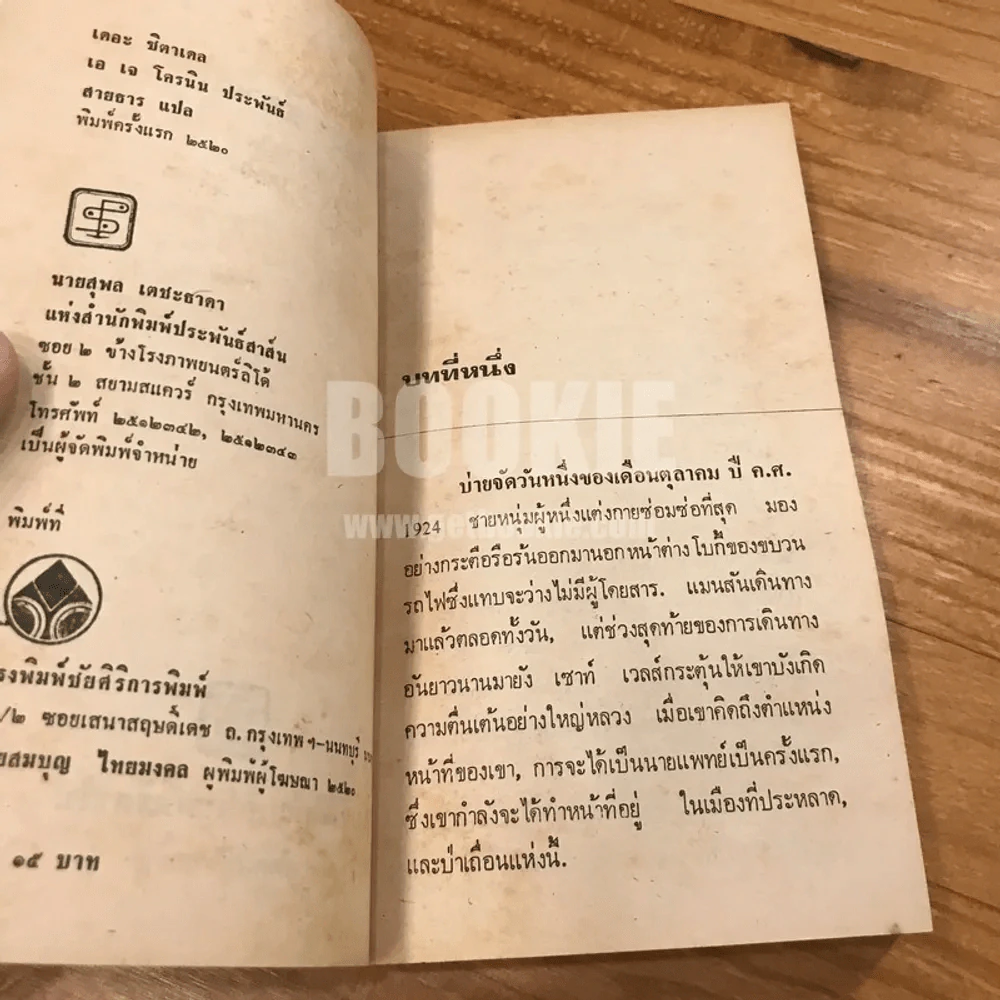 เดอะ ซิตาเดล
เอ เจ โครนิน ประพันธ์
สายธาร แปล
พิมพ์ครั้งแรก ๒๕๒๐
นายสุพล เตชะธาดา
แห่งสำนักพิมพ์ประพันธ์สาส์น
ซอย ๒ ข้างโรงภาพยนตร์ลิโด้
ชั้น ๒ สยามสแควร์ กรุงเทพมหานคร
โทรศัพท์ ๒๕๑๒๓๔๒, ๒๕๑๒๓๔๓
เป็นผู้จัดพิมพ์จำหน่าย
พิมพ์ที่
รงพิมพ์ชัยศิริการพิมพ์
/๒ ซอยเสนาสฤษดิ์เดช ถ. กรุงเทพ ฯ-นนทบุรี
ยสมบุญ ไทยมงคล ผู้พิมพ์ผู้โฆษณา ๒๕๒๐
๑๕ บาท
บทที่หนึ่ง
BOOKIE
บ่ายจัดวันหนึ่งของเดือนตุลาคม ปี ค.ศ.
www.getbookie.com
1924 ชายหนุ่มผู้หนึ่งแต่งกายซ่อมซ่อที่สุด มอง
อย่างกระตือรือร้นออกมานอกหน้าต่าง โบกี้ของขบวน
รถไฟซึ่งแทบจะว่างไม่มีผู้โดยสาร. แมนสันเดินทาง
มาแล้วตลอดทั้งวัน, แต่ช่วงสุดท้ายของการเดินทาง
อันยาวนานมายัง เซาท์ เวลส์กระตุ้นให้เขาบังเกิด
ความตื่นเต้นอย่างใหญ่หลวง เมื่อเขาคิดถึงตำแหน่ง
หน้าที่ของเขา, การจะได้เป็นนายแพทย์เป็นครั้งแรก,
ซึ่งเขากำลังจะได้ทำหน้าที่อยู่ ในเมืองที่ประหลาด,
และป่าเถื่อนแห่งนี้.